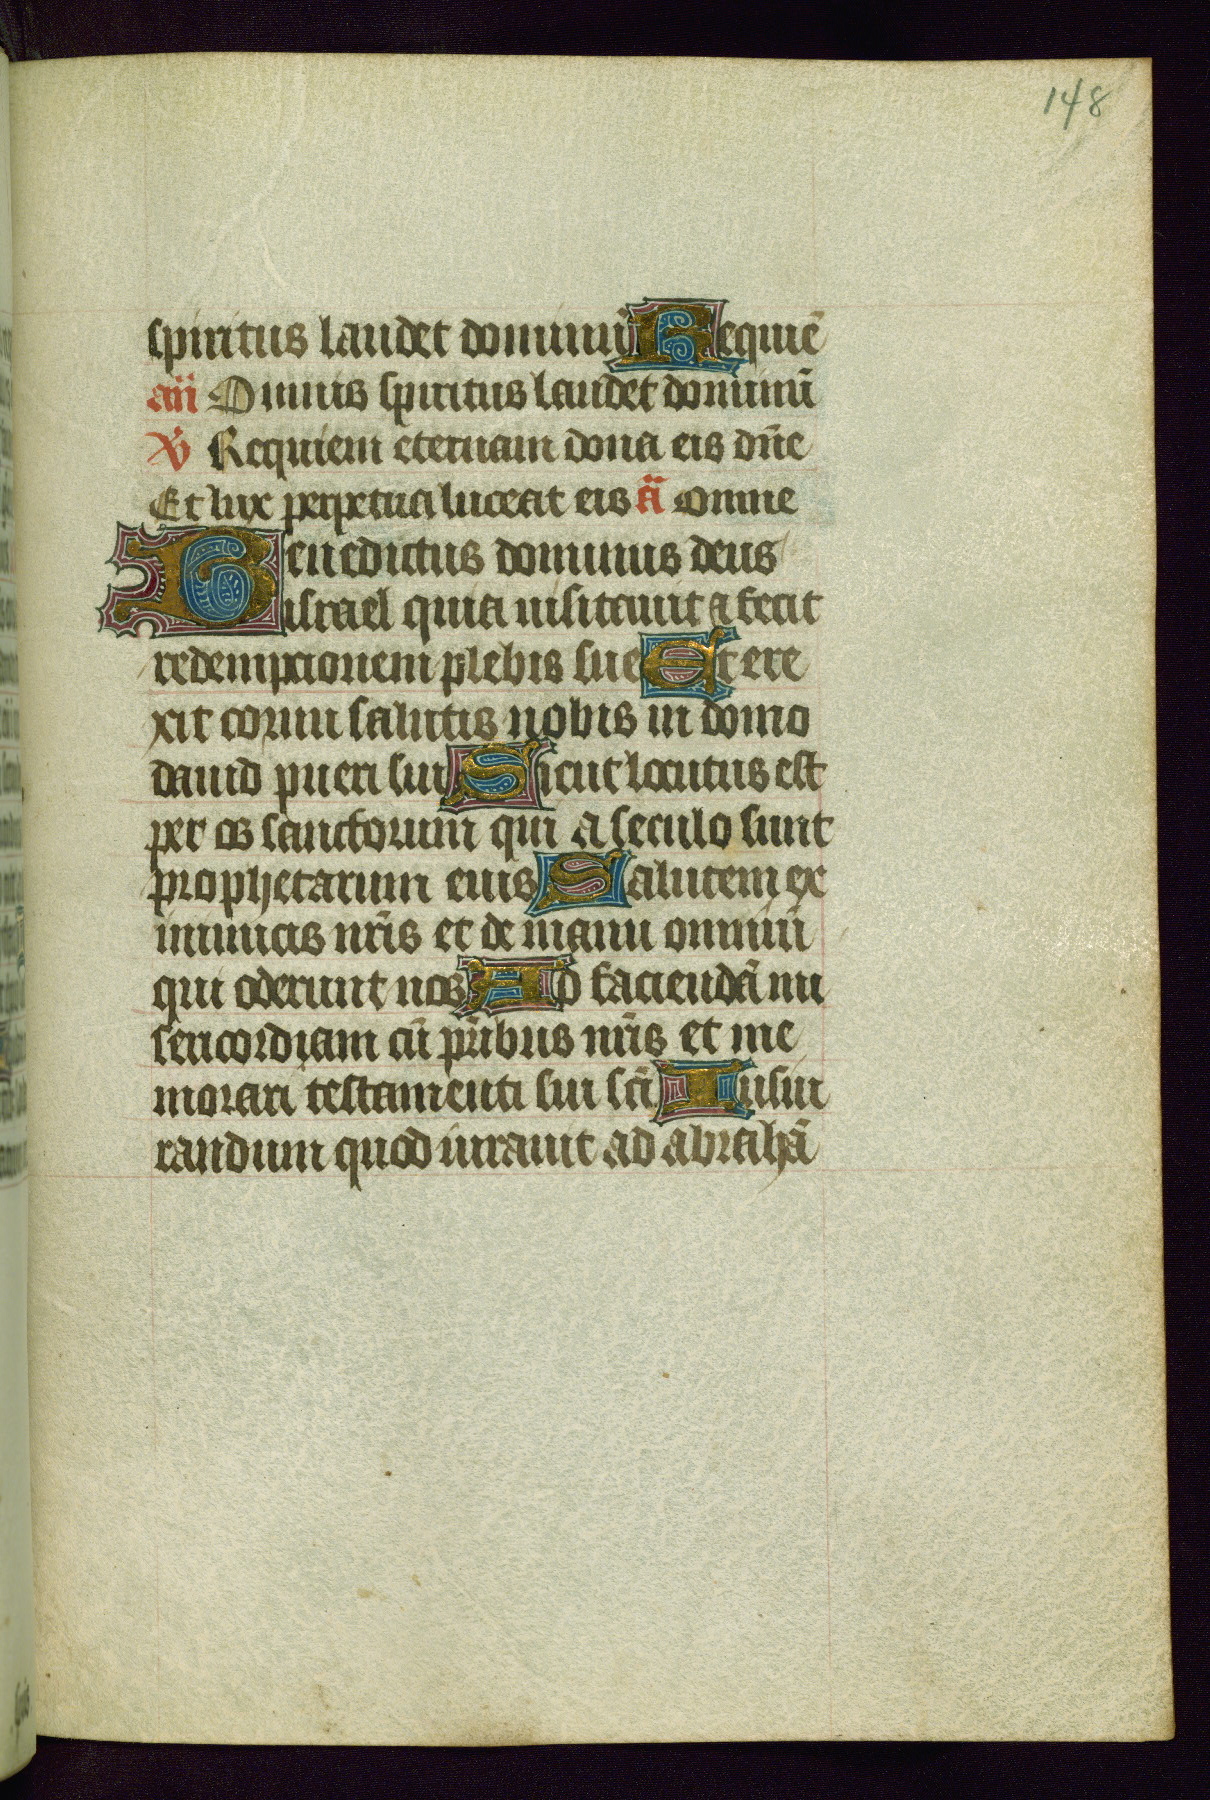 148
spiritus laudet dominū Requiē
añ Omnis spiritus laudet dominū
V̄ Requiem eternam dona eis dn̄e
Et lux perpetua luceat eis ā Omne
Benedictus dominus deus
israel quia uisitauit ⁊ fecit
redemptionem plebis sue Et ere
xit cornu salutis nobis in domo
dauid pueri sui Sicut locutus est
per os sanctorum qui a seculo sunt
prophetarum eius Salutem ex
inimicis nr̄is et de manu omniū
qui oderunt nos Ad faciendā mi
sericordiam cū pr̄ibus nr̄is et me
morari testamenti sui sc̄i Iusiu
randum quod iurauit ad abrahā